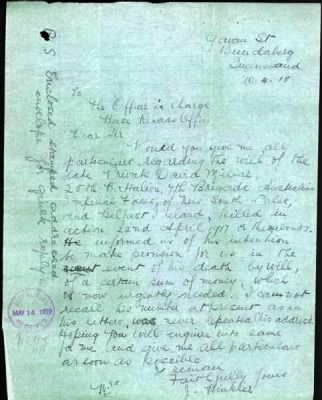 Gavan St
Bundaberg
Queensland
10.4.18
To
The Officer in Charge
Base Records Office
Dear Sir
Would you give me all
particulars regarding the will of the
late Private David
25th Battalion, 7th Brigade Australian
Imperial Force, of New South Wales,
and Belfast Ireland, killed in
action 22nd April 1917 or thereabouts.
He informed us of his intention
to make provision for us in the
event of his death by will,
of a certain sum of money, which
is now urgently needed. I cannot
recall his number at present as in
his letters, was never repeated this address
Hoping you will enquire into same
for me and give me all particulars
as soon as possible
I remain
Faithfully Yours
J. Hinkler
P.S. Enclosed stamped addressed
envelope for quick reply
MAY 14 1918